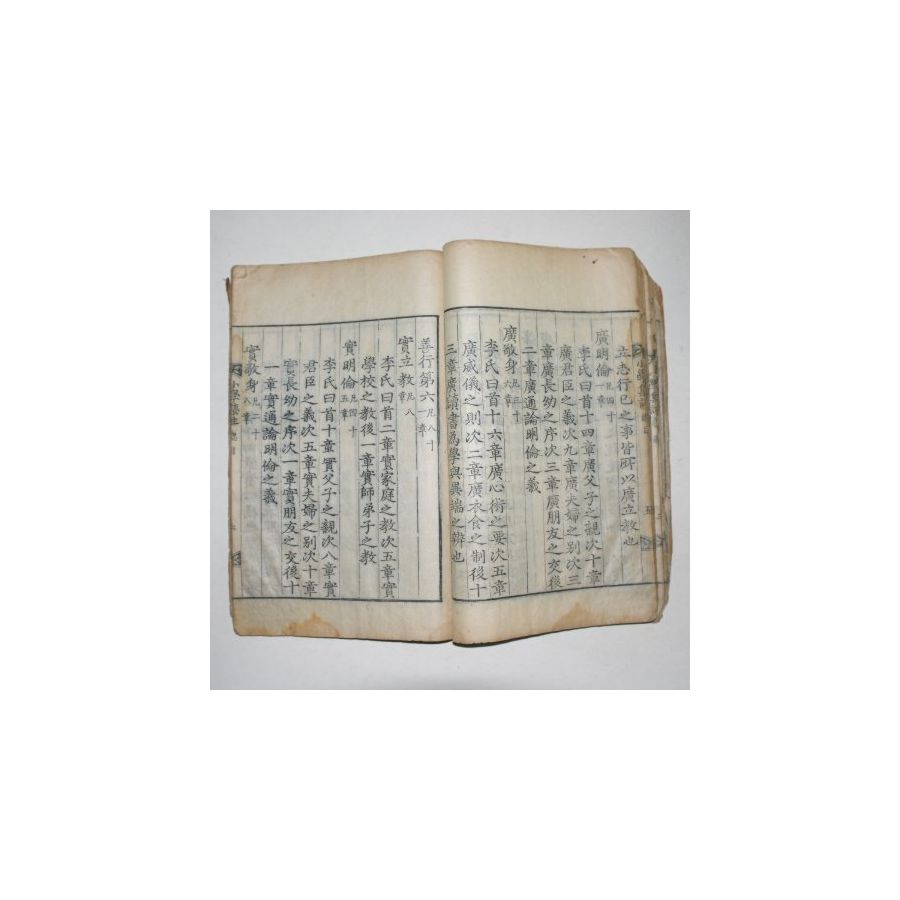 立志行己之事皆所以廣立教也
廣明倫凡四十一章
李氏曰首十四章廣父子之親次十章
廣君臣之義次九章廣夫婦之別次三
章廣長幼之序次三章廣朋友之交後
二章廣通論明倫之義
廣敬身凡三十六章
李氏曰首十六章廣心術之要次五章
廣威儀之則次二章廣衣食之制後十
三章廣讀書為學與異端之辨也
善行第六凡八十一章
實立教凡八章
李氏曰首二章實家庭之教次五章實
學校之教後一章實師弟子之教
實明倫凡四十五章
李氏曰首十章實父子之親次八章實
君臣之義次五章實夫婦之別次十章
實長幼之序次一章實朋友之交後十
一章實通論明倫之義
實敬身凡二十八章
小學集註